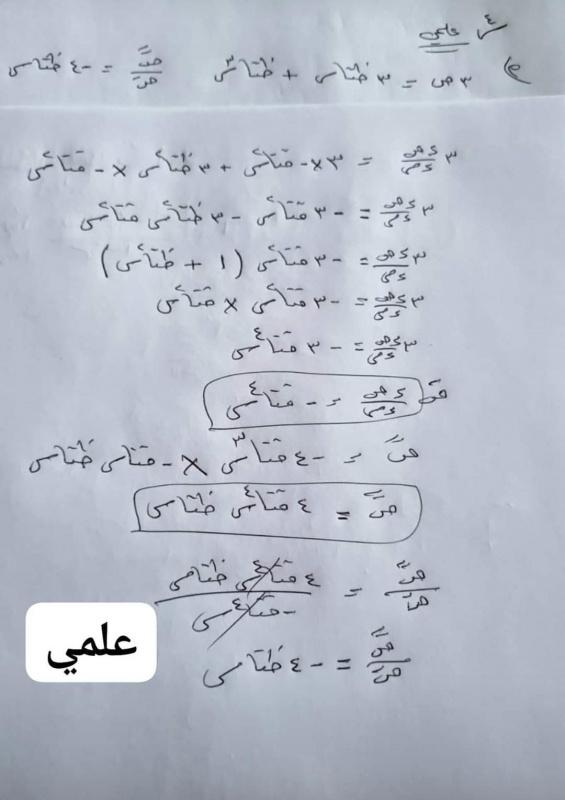 س٤ علمي
ب) ٣ص = ٣ ظتاس + ظتا٣س ص// / ص/ = -٤ ظتاس
٣ ءص/ءس = ٣×-قتا٢س + ٣ ظتا٢س × -قتا٢س
٣ ءص/ءس = -٣ قتا٢س -٣ ظتا٢س قتا٢س
٣ ءص/ءس = -٣ قتا٢س (١ + ظتا٢س)
٣ ءص/ءس = -٣ قتا٢س × قتا٢س
٣ ءص/ءس = -٣ قتا٤س
ءص/ءس = -قتا٤س
ص// = -٤ قتا٣س × -قتاس ظتاس
ص// = ٤ قتا٤س ظتاس
ص// / ص/ = ٤ قتا٤س ظتاس / -قتا٤س
ص// / ص/ = -٤ ظتاس
علمي